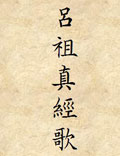 呂祖真經歌